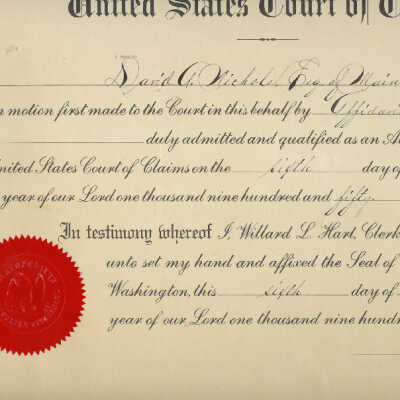 United States Court of C
David A. Nichols, Esq. of Main
n motion first made to the Court in this behalf by Affidavi
duly admitted and qualified as an A
nited States Court of Claims on the sixth day of
year of our Lord one thousand nine hundred and fifty
In testimony whereof I, Willard L. Hart, Clerk
unto set my hand and affixed the Seal of
Washington, this sixth day of
year of our Lord one thousand nine hundr